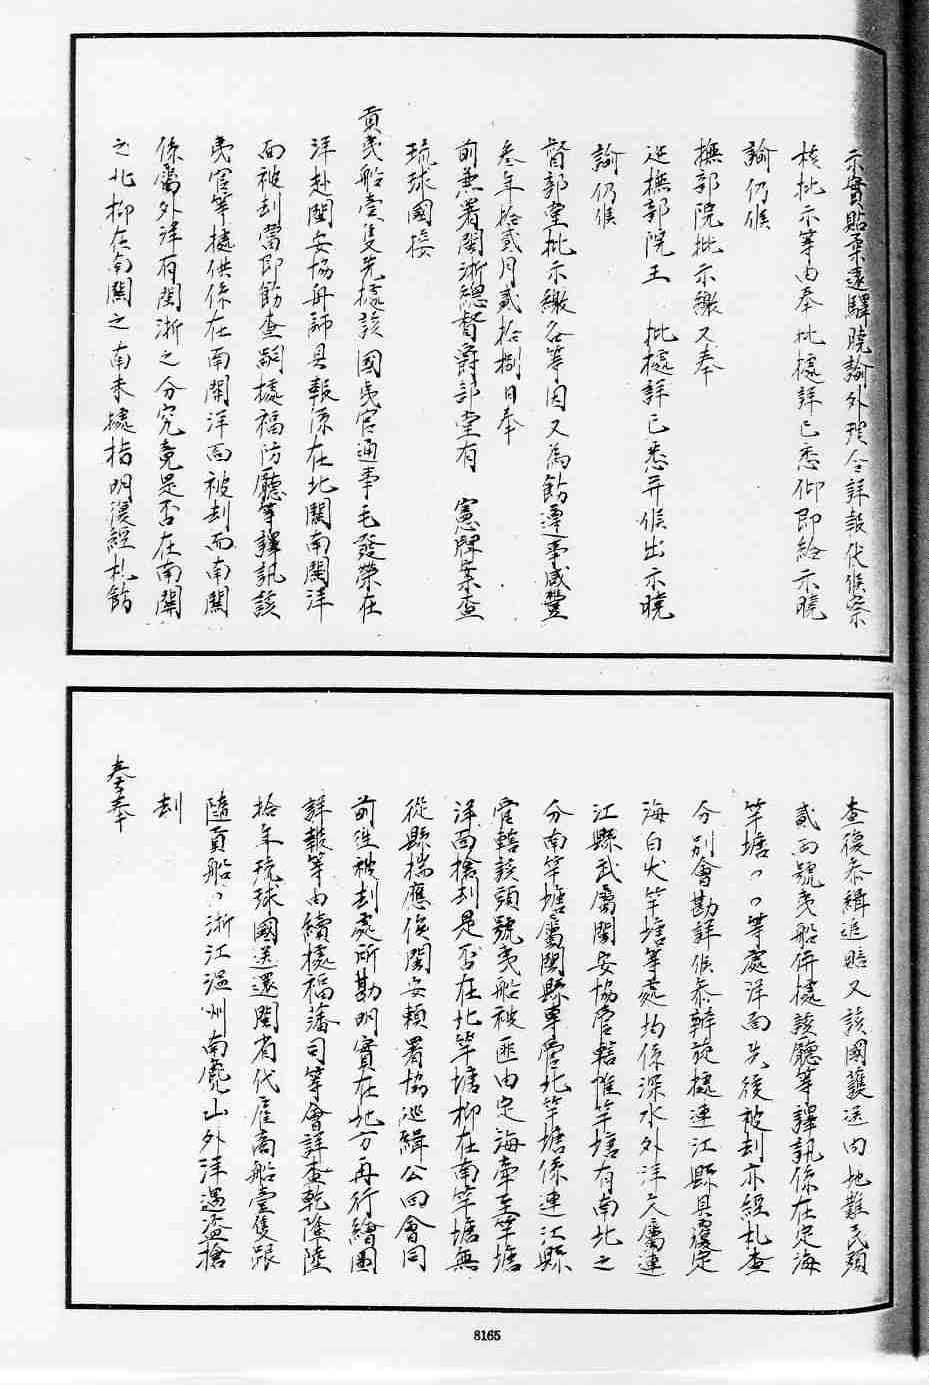 示實貼柔遠驛曉諭外理合詳報伏候察
核批示等由奉批據詳已悉仰即給示曉
諭仍候
撫部院批示繳又奉
巡撫部院王　批據詳已悉并候出示曉
諭仍候
督部堂批示繳各等因又為飭遵事咸豐
叁年拾貳月貳拾捌日奉
前兼署閩浙總督爵部堂有　憲牌案查
琉球國接
貢夷船壹隻先據該國夷官通事毛發榮在
洋赴閩安協舟師具報係在北關南關洋
面被刦當即飭查嗣據福防廳等譯訊該
夷官等據供係在南關洋面被刦而南關
係屬外洋有閩浙之分究竟是否在南關
之北抑在南關之南未據指明復經札飭
查復叅緝追賠又該國護送內地難民頭
貳兩號夷船併據該廳等譯訊係在定海
竿塘、、等處洋面先後被刦亦經札查
分別會勘詳候叅辦旋據連江縣具覆定
海白犬竿塘等處均係深水外洋文屬連
江縣武屬閩安協營轄惟竿塘有南北之
分南竿塘屬閩縣專營北竿塘係連江縣
管轄該頭號夷船被匪由定海牽至竿塘
洋面搶刦是否在北竿塘抑在南竿塘無
從縣揣應俟閩安賴署協巡緝公回會同
前往被刦處所勘明實在地方再行繪圖
詳報等由續據福藩司等會詳查乾隆陸
拾年琉球國送還閩省代雇商船壹隻跟
隨貢船、浙江溫州南麂山外洋遇盜搶
刦
奏奉
8165